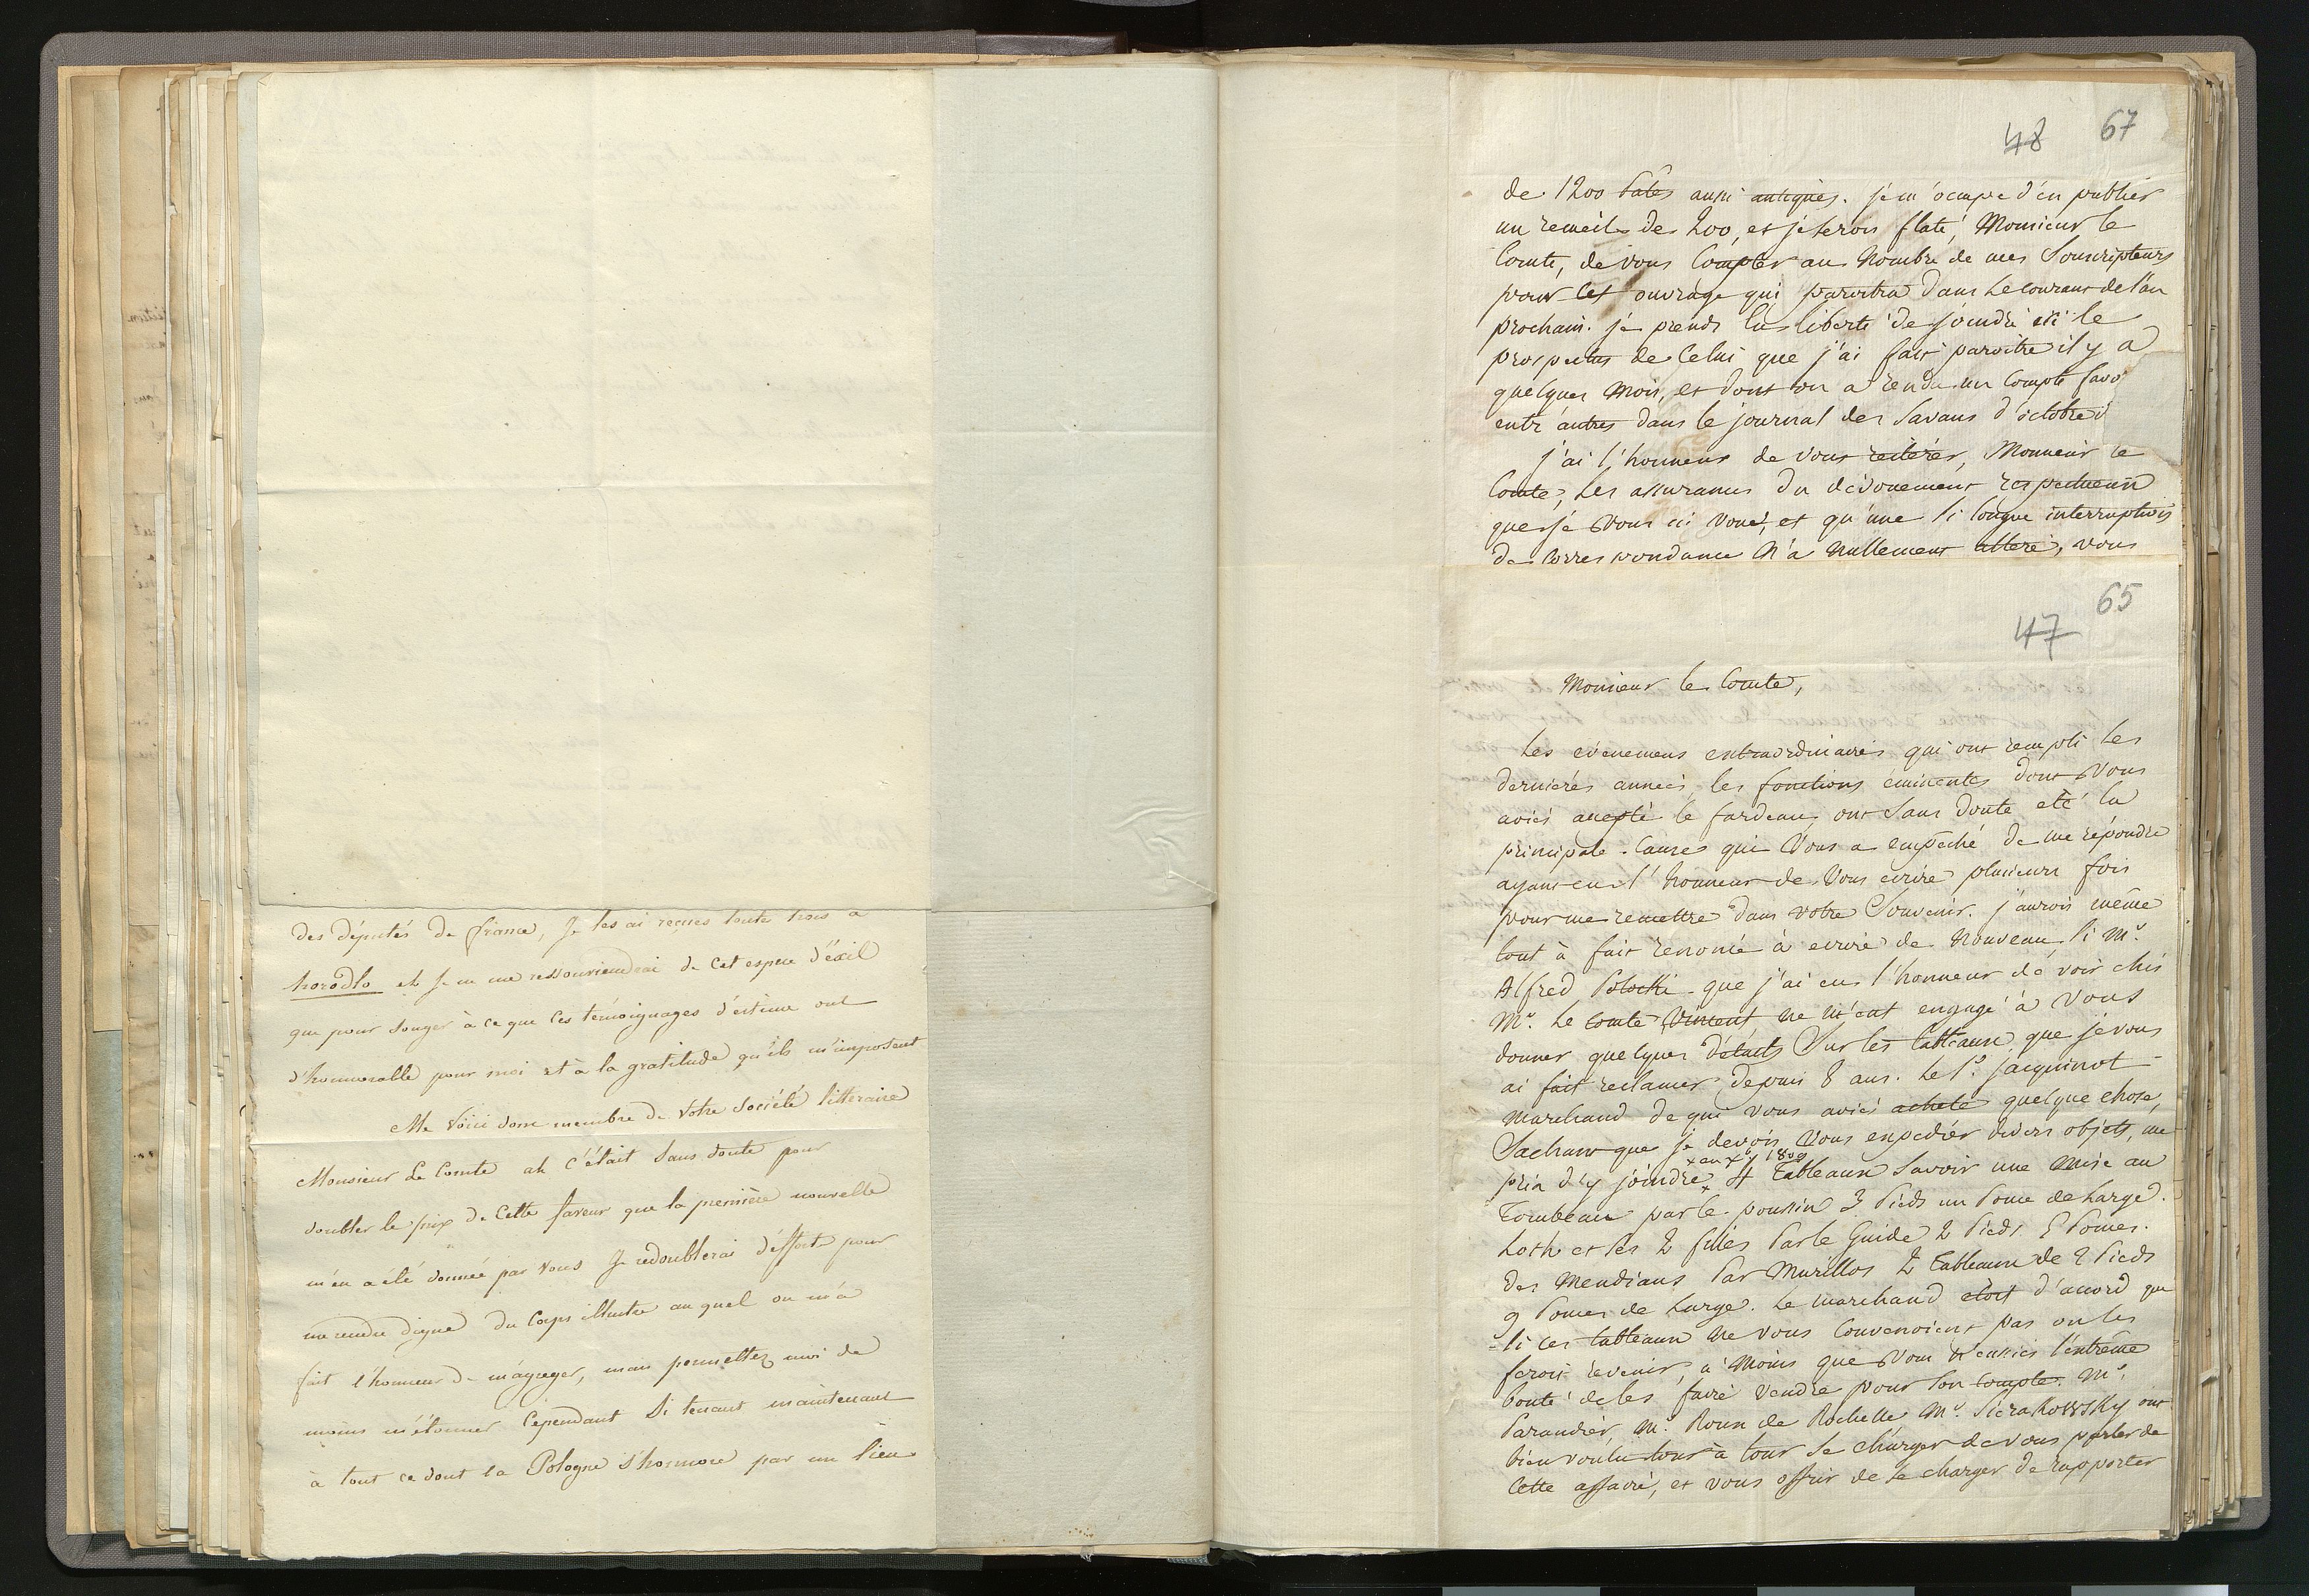 des députés de france, Je les ai reçues toute trois à
horodlo et Je ne me ressouviendrai de cet espece d'éxil
que pour songer à ce que ces témoignages d'estime ont
d'honnorable pour moi et à la gratitude qu'ils m'imposent
Me voici donc membre de votre Société littéraire
Monsieur Le Comte ah c'était sans doute pour
doubler le prix de cette faveur que la première nouvelle
m'en a été donnée par vous Je redoublerai d'éfforts pour
me rendre digne du Corps illustre auquel on m'a
fait l'honneur de m'agréger, mais permettez moi de
moins m'étonner Cependant Si tenant maintenant
à tout ce dont la Pologne s'honnore par un lien
48 67
de 1200 Pates aussi antiques. je m'ocupe d'en publier
un recueil de 200, et je serois flaté, Monsieur le
Comte, de vous Compter au Nombre de mes Souscripteurs
pour Cet ouvrage qui paroitra dans le courant de l'an
prochain. je prends la liberté de joindre ici le
prospectus de Celui que j'ai fait paroitre il y a
quelques Mois, et dont on a rendu un Compte favo
entr'autres dans le journal des Savans d'octobre
j'ai l'honneur de vous reiterer, Monsieur le
Comte, les assurances du dévouement respectueux
que je vous ai voué, et qu'une si longue interruption
de Correspondance N'a Nullement alteré, vous
65
47
Monsieur le Comte,
Les evenemens extraordinaires qui ont rempli les
dernieres années, les fonctions éminentes dont Vous
aviés accepté le fardeau, ont Sans doute eté la
principale Cause qui Vous a empeché de me répondre
ayant eu l'honneur de Vous ecrire plusieurs fois
pour me remettre dans votre Souvenir. j'aurois même
tout à fait renoncé à ecrire de Nouveau si Mr.
Alfred Potocki que j'ai eu l'honneur de voir chés
Mr. Le Comte Vincent ne m'eut engagé à Vous
donner quelques détails Sur les tableaux que je vous
ai fait reclamer depuis 8 ans. Le Sr. jacquinot
Marchand de qui vous aviés acheté quelque chose,
Sachant que je devois Vous expedier divers objets, me
x en xbr 1809
pria d'y joindre x 4 Tableaux Savoir une Mise au
Tombeau par le poussin 3 Pieds un Pouce de Large.
Loth et les 2 filles Par le Guide 2 Pieds 5 Pouces.
des Mendians Par Murillos 2 Tableaux de 2 Pieds
9 Pouces de Large. Le marchand etoit d'accord que
si ces tableaux Ne vous Convenoient pas on les
feroit revenir, à Moins que Vous n'eussiés l'extrême
bonté de les faire Vendre pour Son Compte. Mr.
Parandier, Mr. Roux de Rochelle Mr. Sierakowsky ont
bien voulu tour à tour Se charger de vous parler de
Cette affaire, et vous offrir de Se charger de rapporter